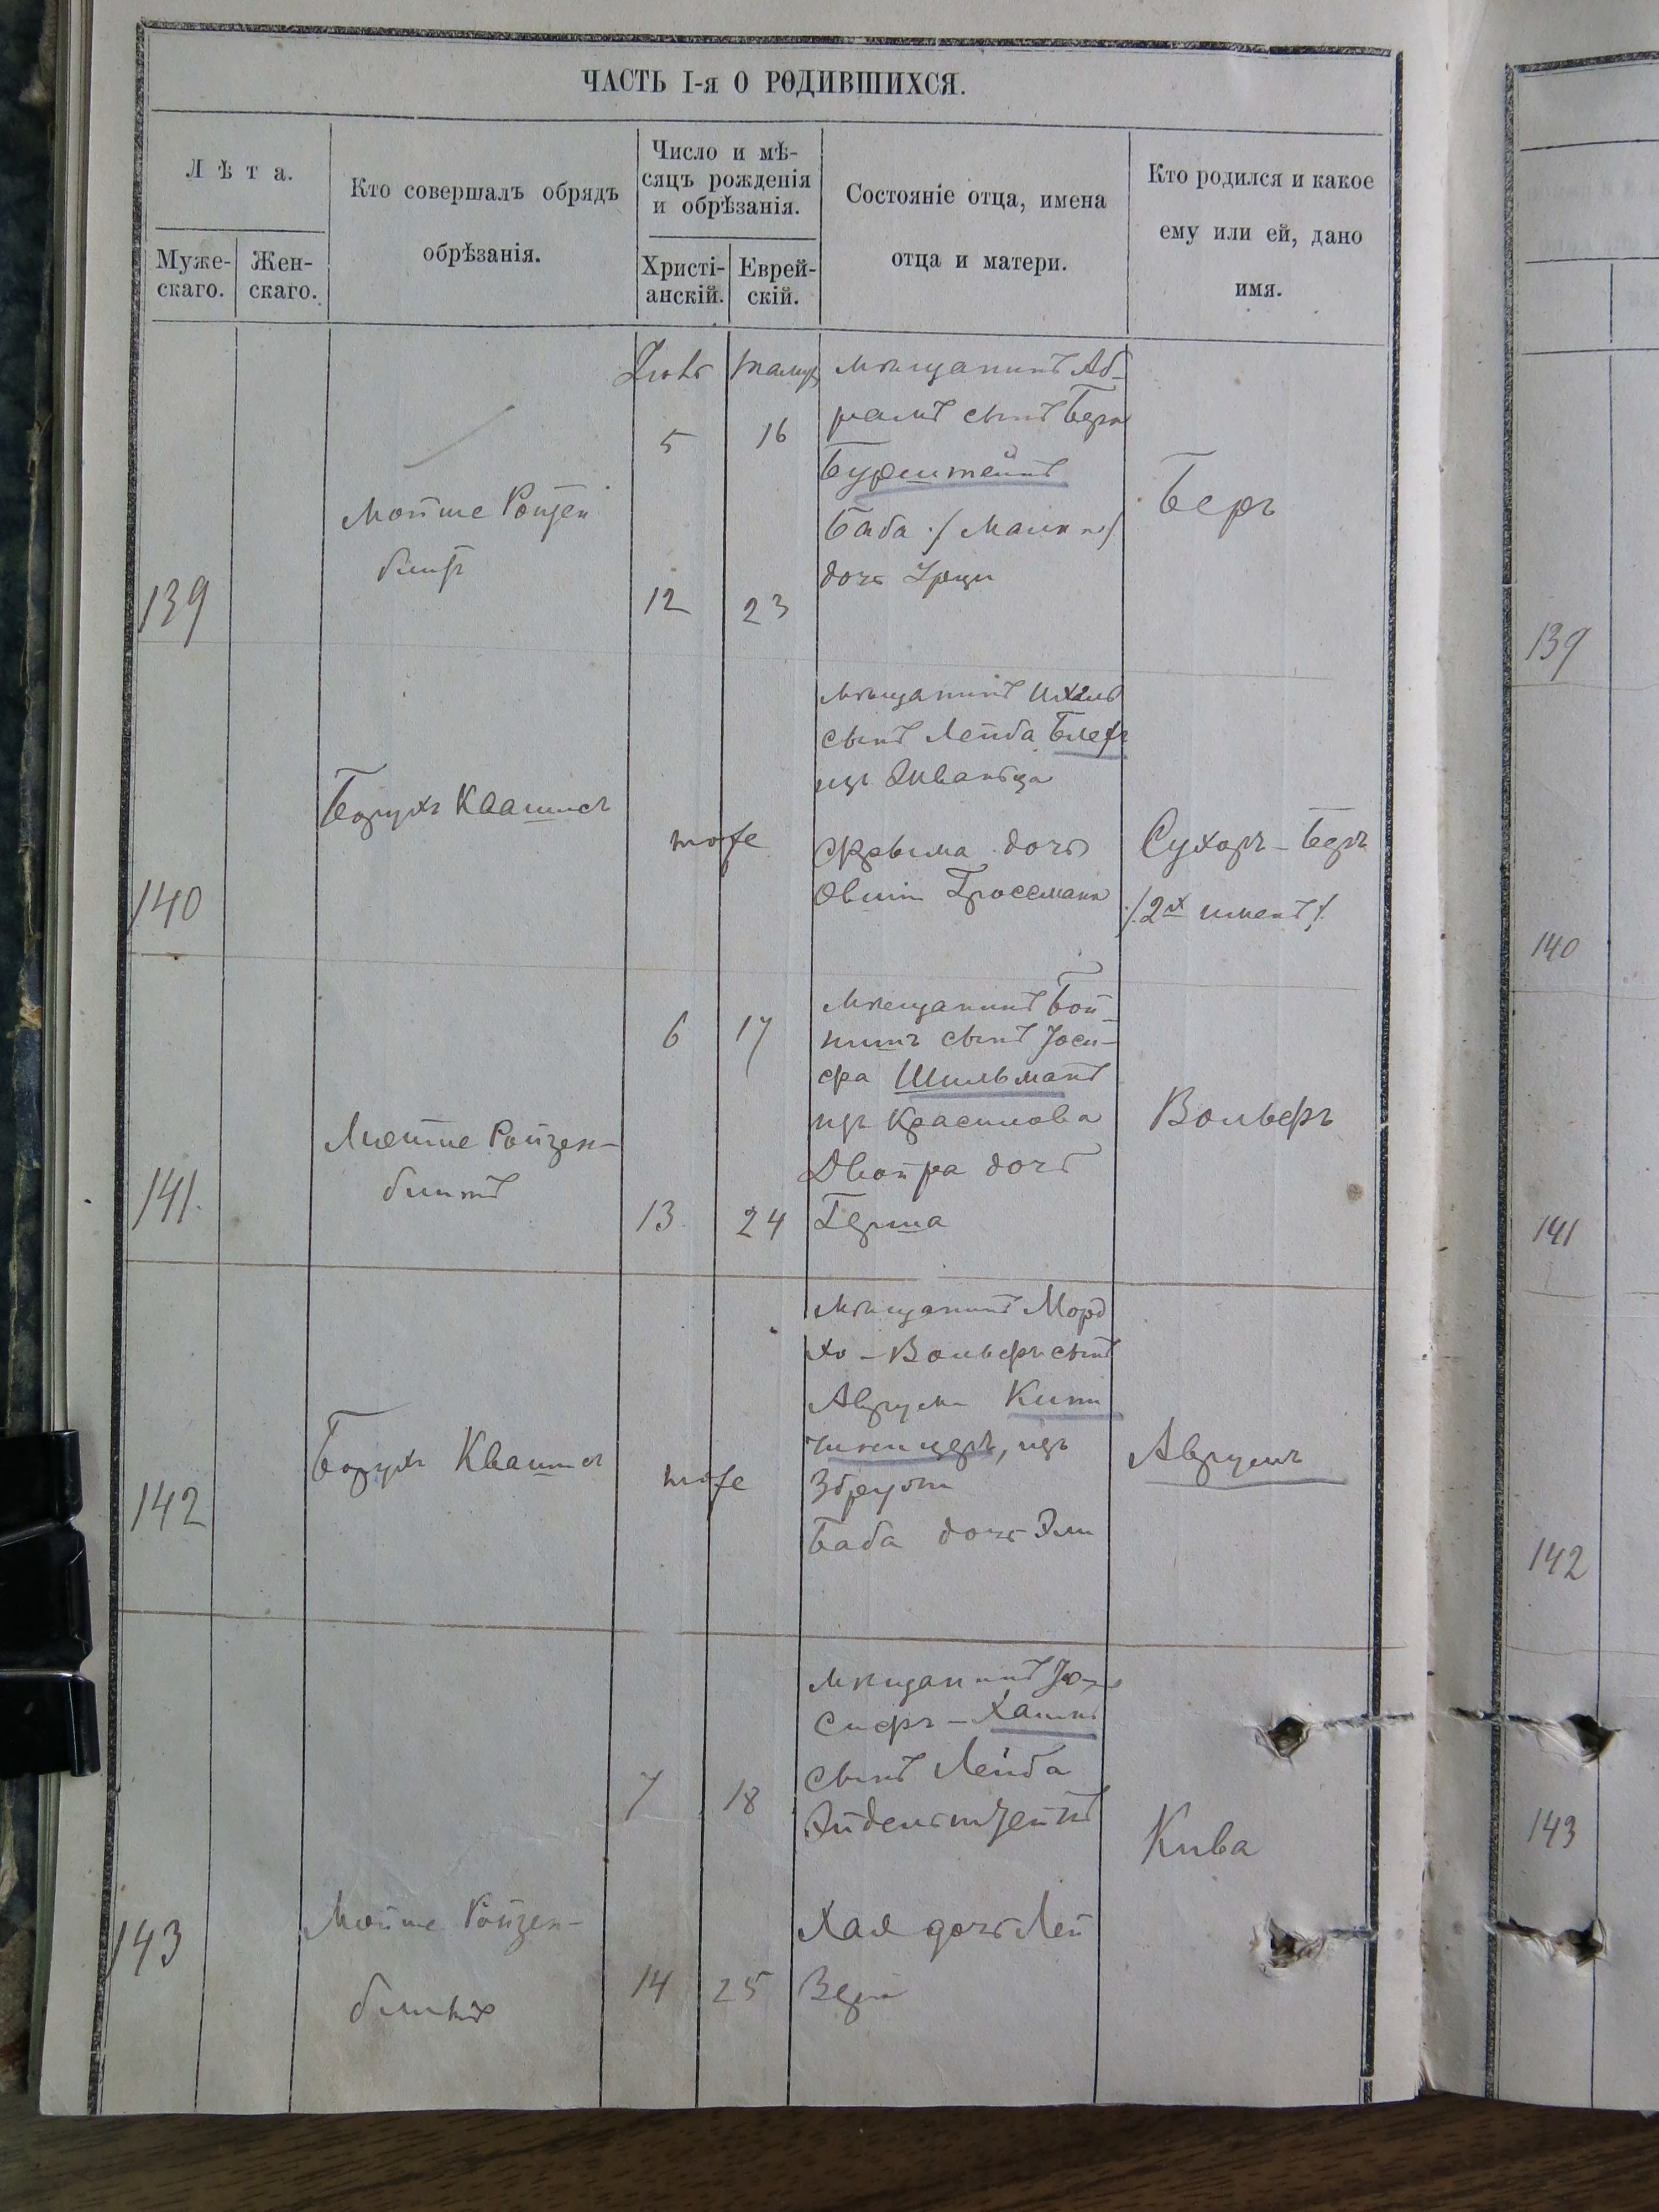 ЧАСТЬ I-я О РОДИВШИХСЯ.
Лѣта.
Муже-
скаго.
Жен-
скаго.
Кто совершалъ обрядъ
обрѣзанія.
Число и мѣ-
сяцъ рожденія
и обрѣзанія.
Христі-
анскій.
Еврей-
скій.
Состояніе отца, имена
отца и матери.
Кто родился и какое
ему или ей, дано
имя.
139
Мойше Ройзен
Блитъ
Іюль
5
12
Тамуз
16
23
мѣщанинъ Аб-
рамъ сынъ Берка
Бурштейнъ
Баба
дочь
Беръ
139
140
Борухъ Квашисъ
тоже
мѣщанинъ
сынъ Лейба
изъ Жванца
Фрыма дочь
Овши Гроссмана
Сухоръ-Беръ
/2хъ именъ/
140
141.
Мойше Ройзен-
блитъ
6
13
17
24
мѣщанинъ Бой-
нишъ сынъ Іоси-
фа Шильманъ
изъ Красилова
Двойра дочь
Герша
Вольфъ
141
142
Борухъ Квашисъ
тоже
мѣщанинъ Морд
хо-Вольфъ сынъ
Аврума
изъ
Баба дочь Эли
Аврумъ
142
143
Мойше Ройзен-
блитъ
7
14
18
25
мѣщанинъ Іо-
сифъ-Хаимъ
сынъ Лейба
Эйдельштейнъ
Хая дочь Лей
Зера
Кива
143